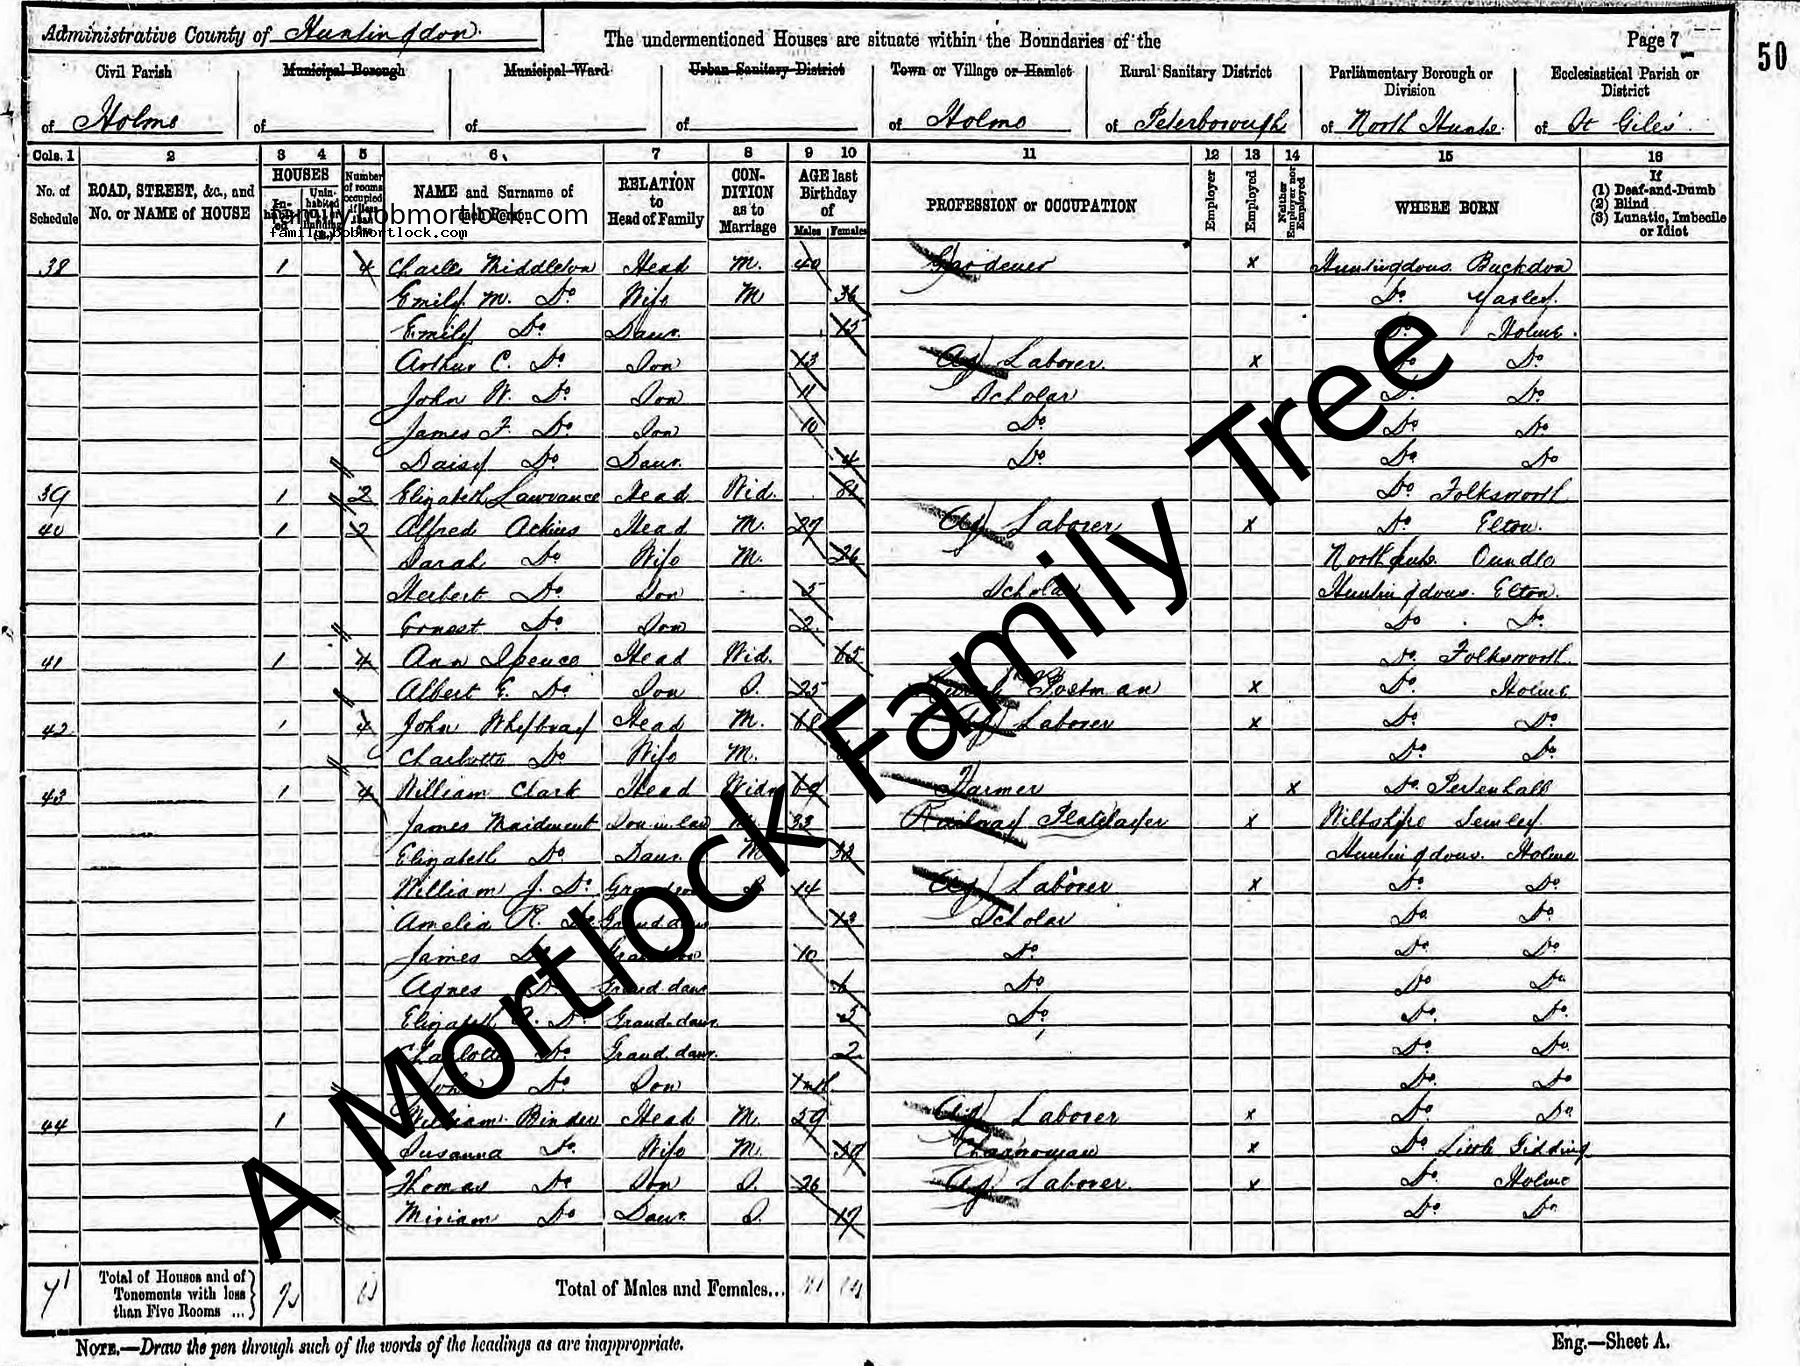 Administrative County of Huntingdon.
The undermentioned Houses are situate within the Boundaries of the
Page 7
50
Civil Parish Municipal Borough Municipal Ward Urban Sanitary District Town or Village or Hamlet Rural Sanitary District Parliamentary Borough or Division Ecclesiastical Parish or District
of Holme of of of of Holme of Peterborough of North Hunts. of St Giles'
Cols. 1 2 3 4 5 6. 7 8 9 10 11 12 13 14 15 16
No. of Schedule ROAD, STREET, &c., and No. or NAME of HOUSE HOUSES NAME and Surname of each Person RELATION to Head of Family CON-DITION as to Marriage AGE last Birthday of Males Females PROFESSION or OCCUPATION Employer Employed Neither Employer nor Employed WHERE BORN If (1) Deaf-and-Dumb (2) Blind (3) Lunatic, Imbecile or Idiot
family.bobmortlock.com
family.bobmortlock.com
38 1 4 Charles Middleton Head M. 40 Gardener x Huntingdons. Buckdon
Emily M. Do Wife M 36 Do. Yaxley.
Emily Do Daur. 15 Do. Holme.
Arthur C. Do Son 13 Ag Laborer. x Do Do.
John W. Do. Son 11 Scholar Do. Do.
James F. Do. Son 10 Do. Do. Do.
Daisy Do. Daur. 4 Do. Do. Do
39 1 2 Elizabeth Lawrance Head Wid. Do. Folksworth
40 1 2 Alfred Ackins Head M. 27 Ag Laborer x Do. Elton.
Sarah Do Wife M. 26 Oundle
Herbert Do. Son 5 Scholar Huntingdons. Elton.
Ernest Do. Son 2. Do. Do.
41 1 4 Ann Spence Head Wid. 65 Do. Folksworth.
Albert E. Do. Son S. 25 Postman x Do. Holme
42 1 4 John Whybray Head M. 68 Ag Laborer x Do. Do.
Charlotte Do. Wife M. Do. Do.
43 1 4 William Clark Head Widr 69 Farmer x Do. Pertenhall
James Maidment Son-in-law M. 33 Railway Platelayer x Wiltshire Semley.
Elizabeth Do. Daur. M 32 Huntingdons. Holme
William J. Do. Grandson S 14 Ag Laborer x Do. Do.
Amelia R. Do Granddaur 12 Scholar Do. Do.
James Do. Grandson 10 Do. Do. Do.
Agnes Do. Grand daur Do. Do Do.
Elizabeth Do. Grand daur. 5 Do. Do. Do.
Charlotte Do. Grand daur. 2 Do. Do.
John Do. Son Do. Do
44 1 William Binder Head M. 59 Ag Laborer x Do. Do.
Susanna Do. Wife M. 59 Charwoman x Do. Little Gidding
Thomas Do. Son S. 26 Ag. Laborer. x Do. Holme
Miriam Do. Daur. S. 17 Do. Do.
Total of Houses and of Tenements with less than Five Rooms ...
Total of Males and Females...
NOTE.—Draw the pen through such of the words of the headings as are inappropriate.
Eng.—Sheet A.
A Mortlock Family Tree